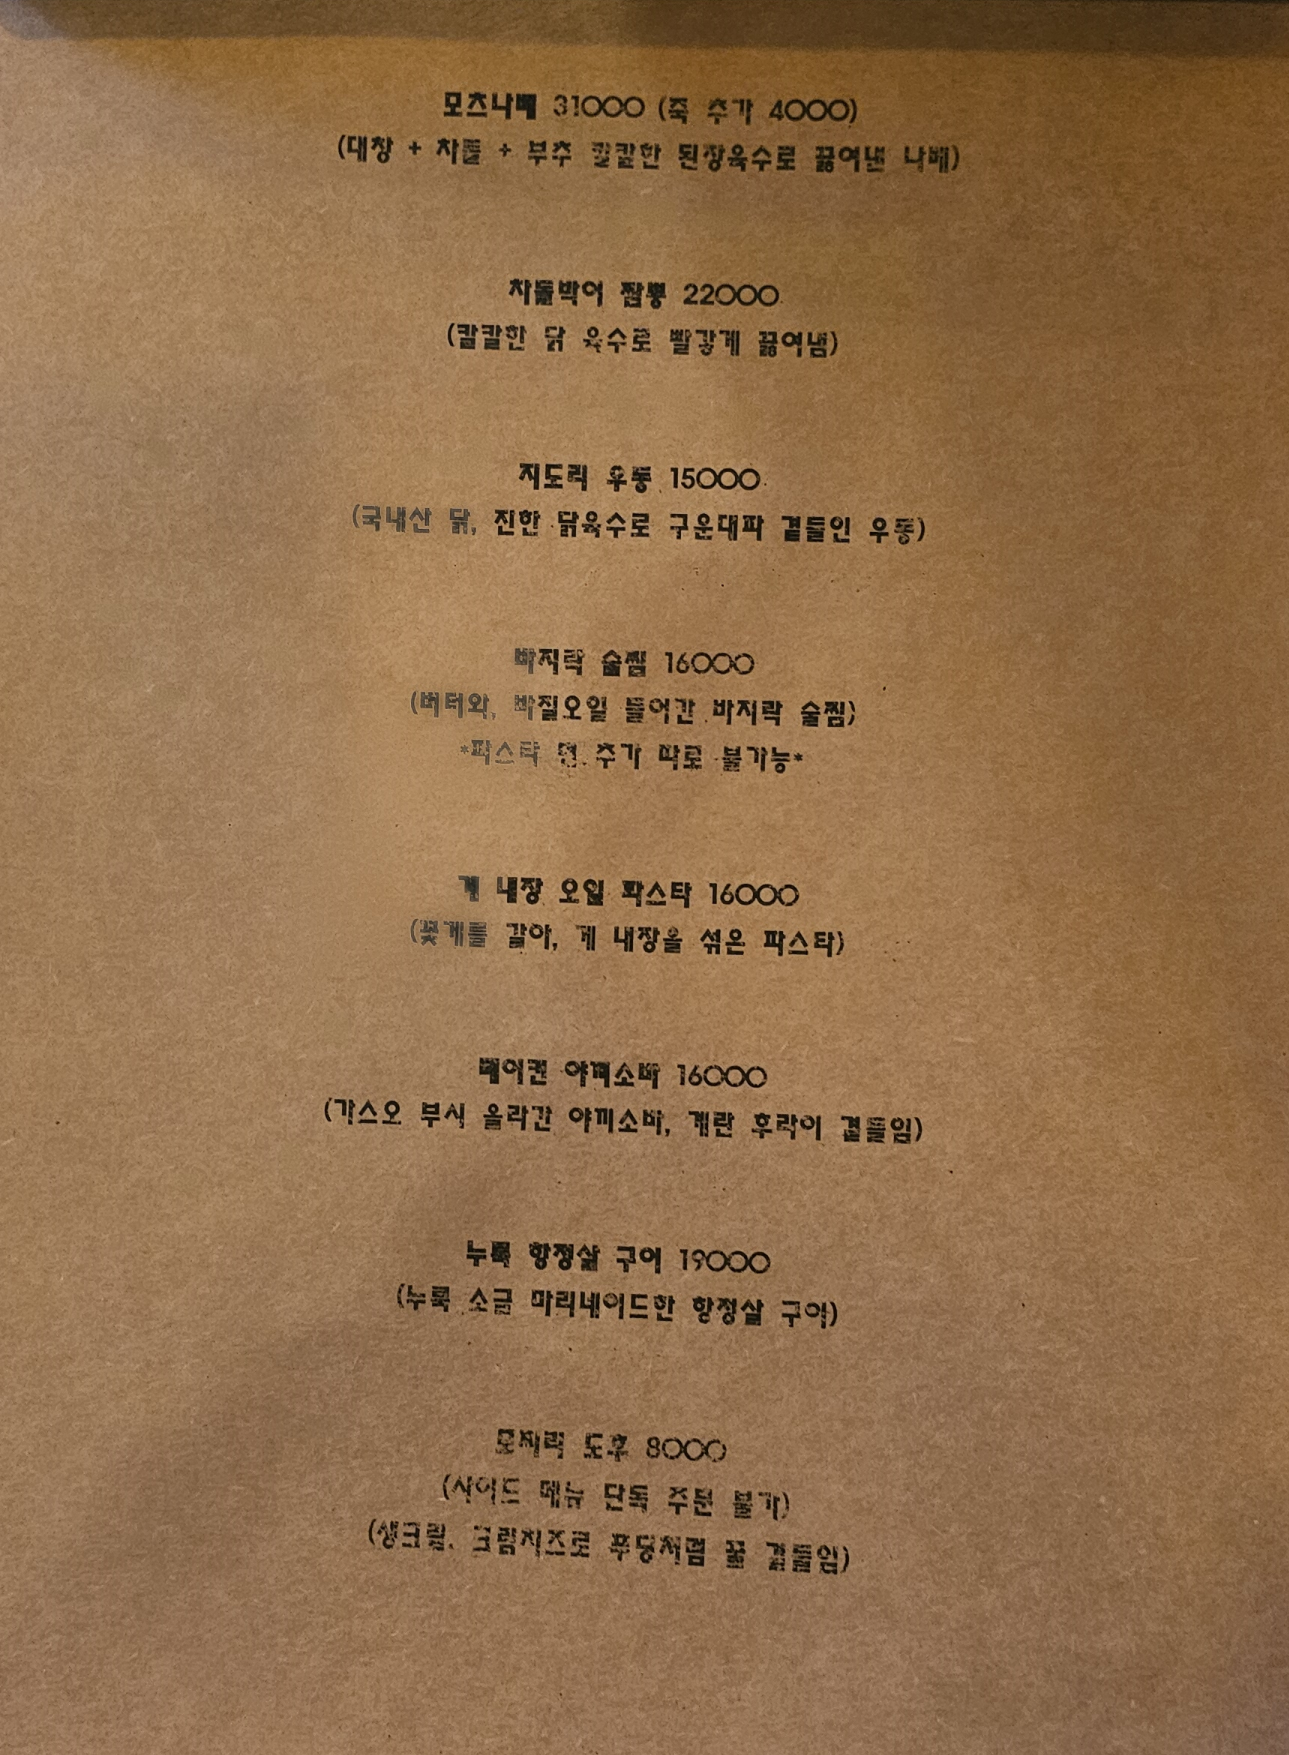 모츠나베 31000 (죽 추가 4000)
(대창 + 차돌 + 부추 칼칼한 된장육수로 끓여낸 나베)
차돌박이 짬뽕 22000
(칼칼한 닭 육수로 빨갛게 끓여냄)
지도리 우동 15000
(국내산 닭, 진한 닭육수로 구운대파 곁들인 우동)
바지락 술찜 16000
(버터와, 바질오일 들어간 바지락 술찜)
*파스타 면 추가 따로 불가능*
게 내장 오일 파스타 16000
(꽃게를 갈아, 게 내장을 섞은 파스타)
베이컨 야끼소바 16000
(가스오 부시 올라간 야끼소바, 계란 후라이 곁들임)
누룩 항정살 구이 19000
(누룩 소금 마리네이드한 항정살 구이)
모찌리 도후 8000
(사이드 메뉴 단독 주문 불가)
(생크림, 크림치즈로 푸딩처럼 꿀 곁들임)